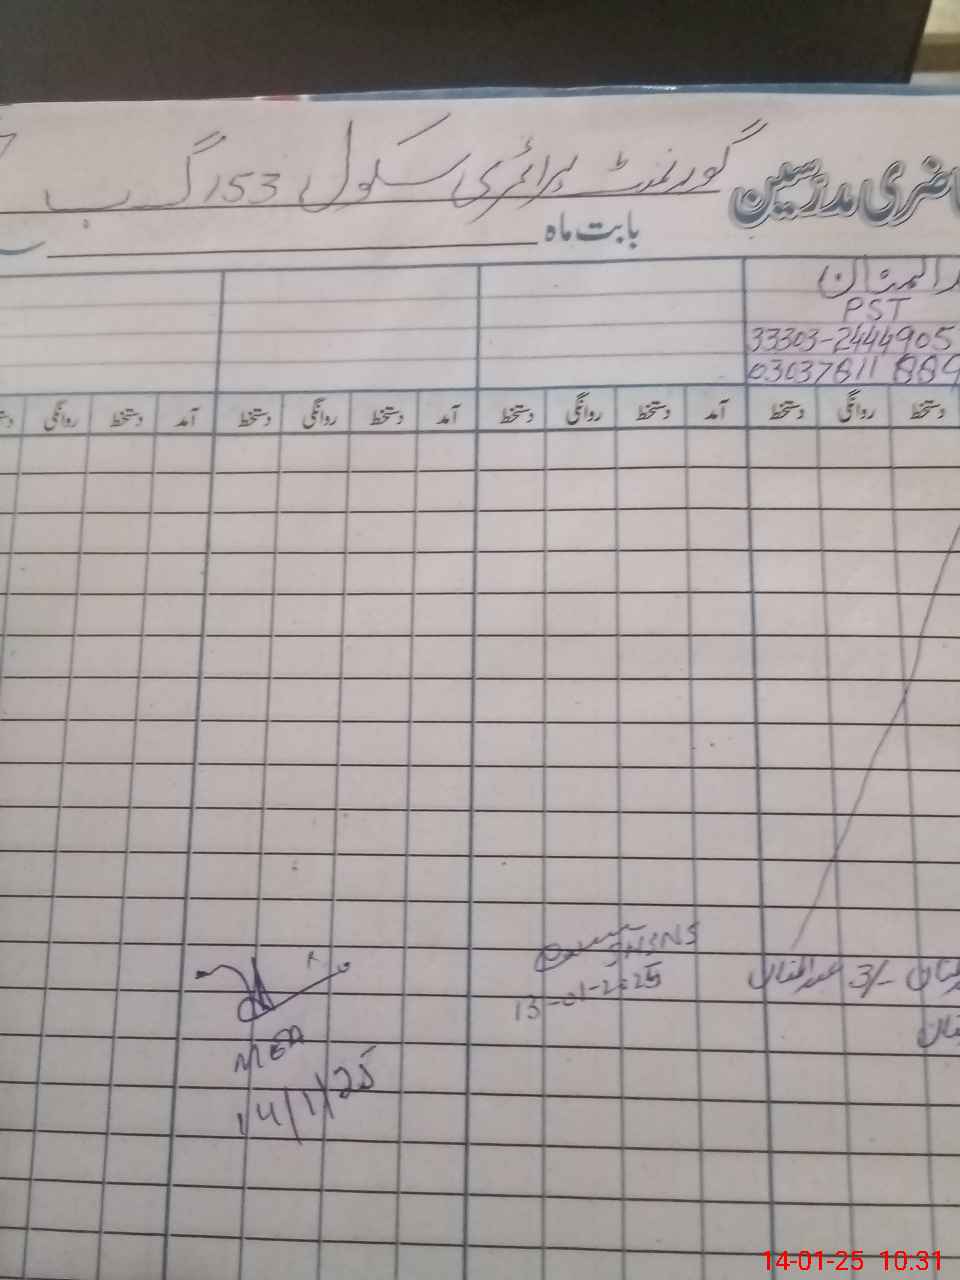 حاضری مدرسین گورنمنٹ پرائمری سکول 153 رگ ب
بابت ماہ
دالمنان
PST
33303-2444905
03037811889
دستخط روانگی دستخط آمد دستخط روانگی دستخط آمد دستخط روانگی دستخط آمد دستخط روانگی
SNSNS
13-01-2025
عبدالمنان 3/-
MEA
14/1/25
14-01-25 10.31